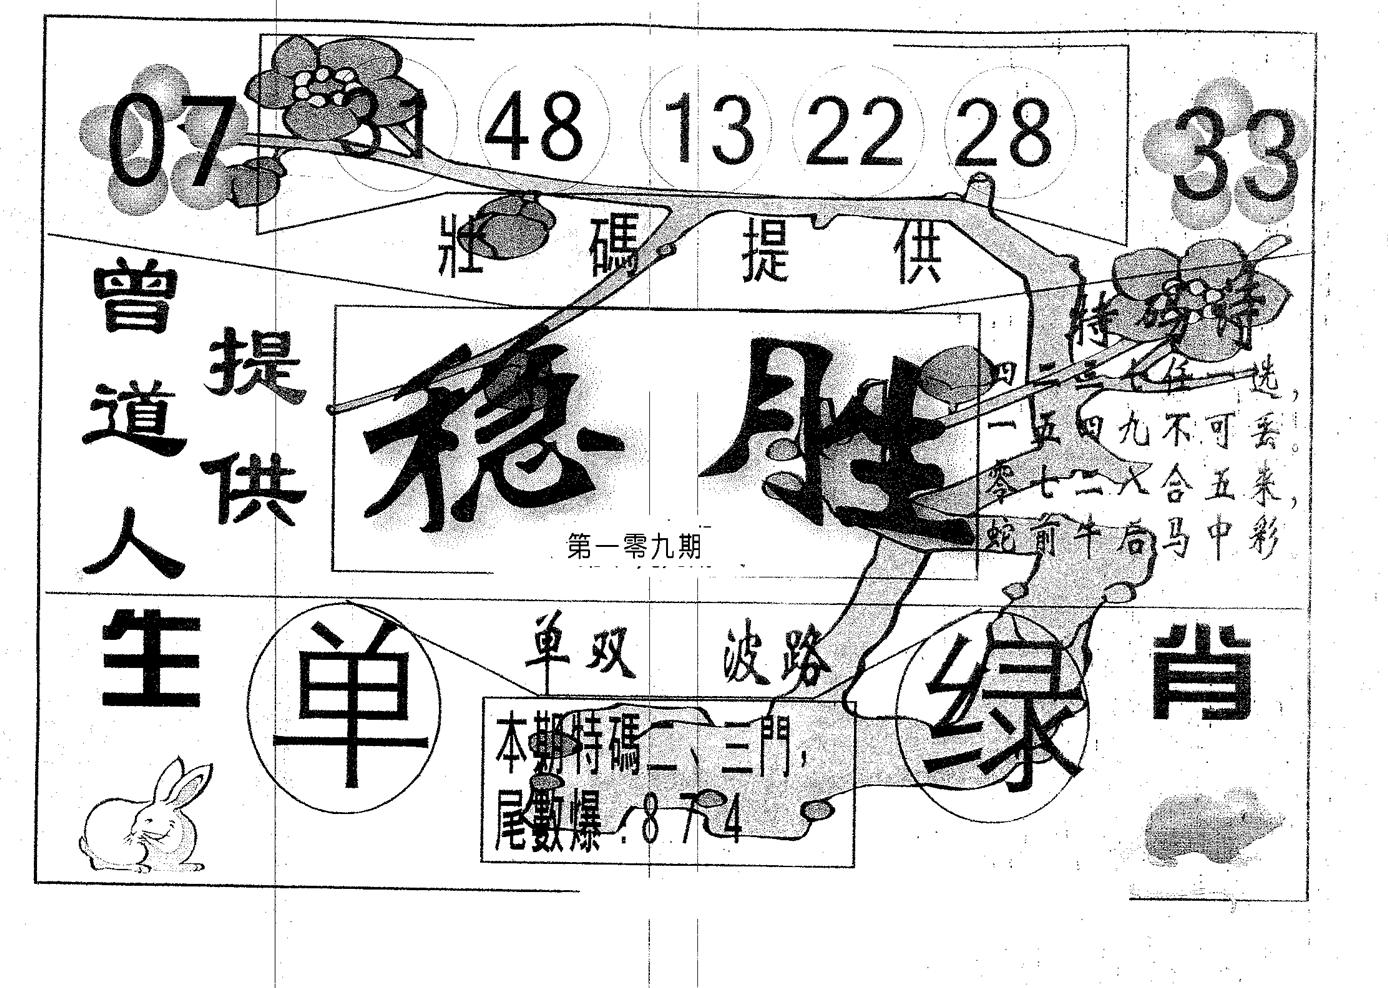 07 31 48 13 22 28 33
壯碼提供
曾道人
提供
稳胜
第一零九期
特碼诗
四二三七任一选，
一五四九不可丢。
零七二八合五来，
蛇前牛后马中彩
生肖
单
单双 波路
绿
本期特碼二、三門，
尾數爆：8 7 4